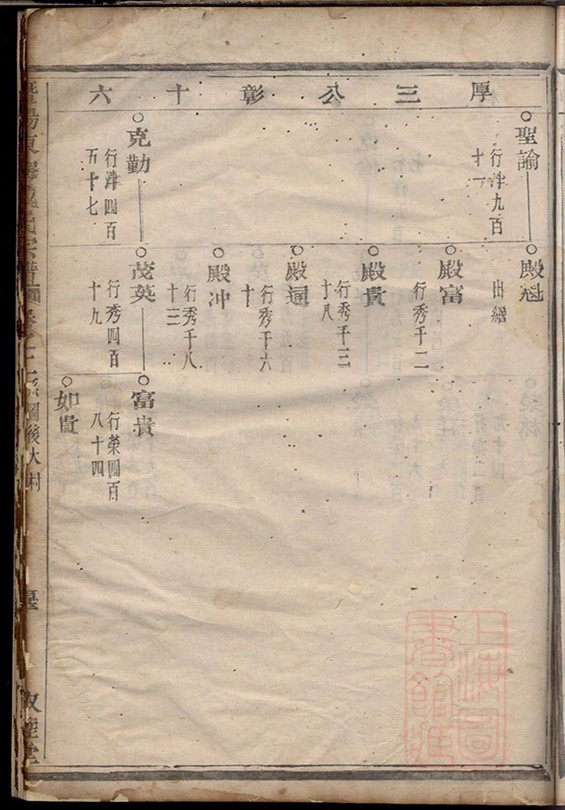 厚三公彰十六
聖諭
行津九百
十一
克勤
行津四百
五十七
殿冠
出繼
殿富
行秀千二
殿貴
行秀千三
十八
殿洞
行秀千六
十
殿冲
行秀千八
十三
茂英
行秀四百
十九
富貴
行榮四百
八十四
如貴
系圖後大村
上海圖
書館